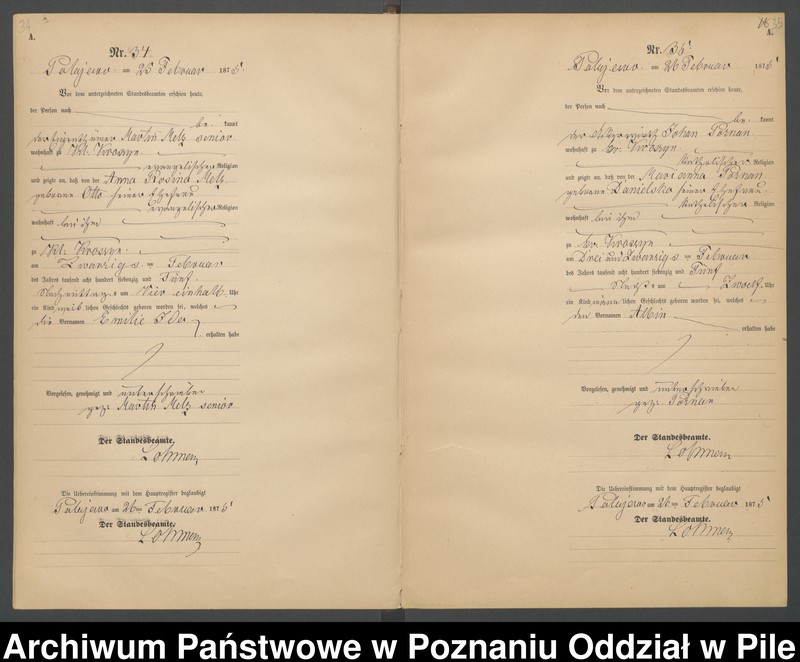 34
A.
Nr. 34
Polajewo am 25 Februar 1875.
Vor dem unterzeichneten Standesbeamten erschien heute,
der Person nach
be kannt
der Eigenthümer Martin Metz senior
wohnhaft zu Kl. Kroszyn
evangelischer Religion
und zeigte an, daß von der Anna Rosina Metz
geborene Otto seiner Ehefrau
evangelischer Religion
wohnhaft bei ihm
zu Kl. Kroszyn
am Zwanzigs ten Februar
des Jahres tausend acht hundert siebenzig und Fünf
Nachmittags um Vier einhalb Uhr
ein Kind weib lichen Geschlechts geboren worden sei, welches
die Vornamen Emilie Ida
erhalten habe
Vorgelesen, genehmigt und unterschrieben
gez. Martin Metz senior
Der Standesbeamte.
Die Uebereinstimmung mit dem Hauptregister beglaubigt
Polajewo am 26ten Februar 1875
Der Standesbeamte.
35
A.
Nr. 35
Polajewo am 26 Februar 1875
Vor dem unterzeichneten Standesbeamten erschien heute,
der Person nach
be kannt
der Johan Poznan
wohnhaft zu Gr. Kroszyn
katholischer Religion
und zeigte an, daß von der Marianna Poznan
geborene Danielska seiner Ehefrau
katholischer Religion
wohnhaft bei ihm
zu Gr. Kroszyn
am Drei und Zwanzigs ten Februar
des Jahres tausend acht hundert siebenzig und Fünf
um Zwoelf Uhr
ein Kind männ lichen Geschlechts geboren worden sei, welches
den Vornamen Albin
erhalten habe
Vorgelesen, genehmigt und unterschrieben
gez. Poznan
Der Standesbeamte.
Die Uebereinstimmung mit dem Hauptregister beglaubigt
Polajewo am 26ten Februar 1875
Der Standesbeamte.
Archiwum Państwowe w Poznaniu Oddział w Pile